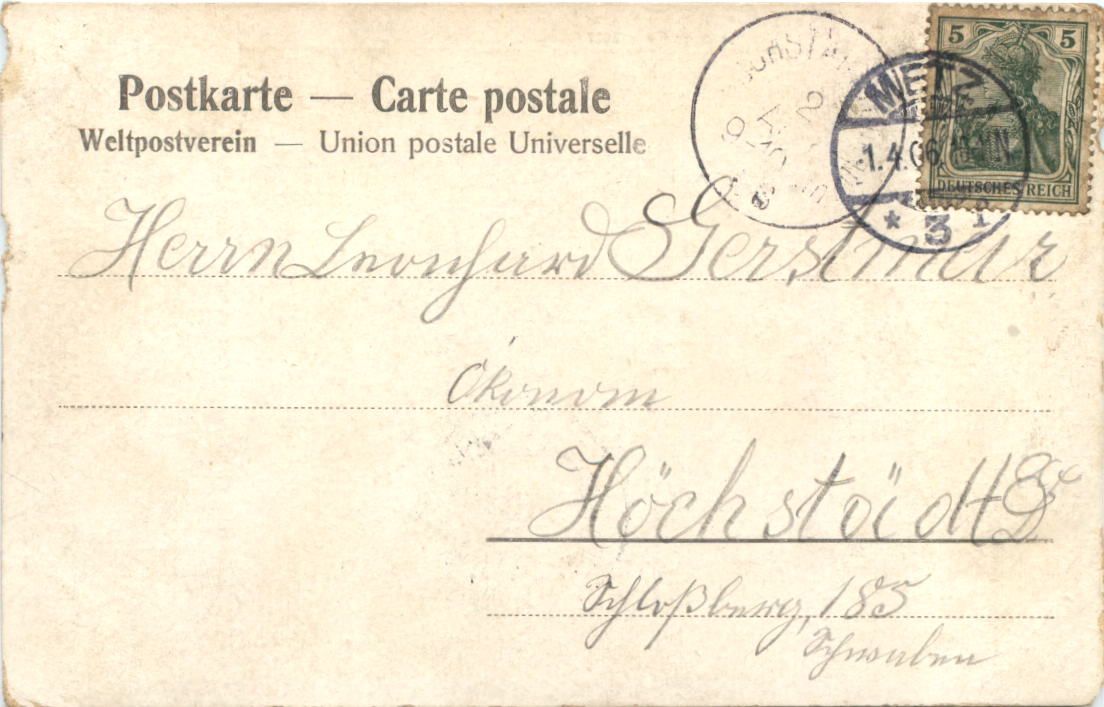 Postkarte — Carte postale
Weltpostverein — Union postale Universelle
5 5
DEUTSCHES REICH
METZ
1.4.06
* 3
Herrn Leonhard Gerstmeir
Ökonom
Höchstädt
Schloßberg, 185
Schwaben